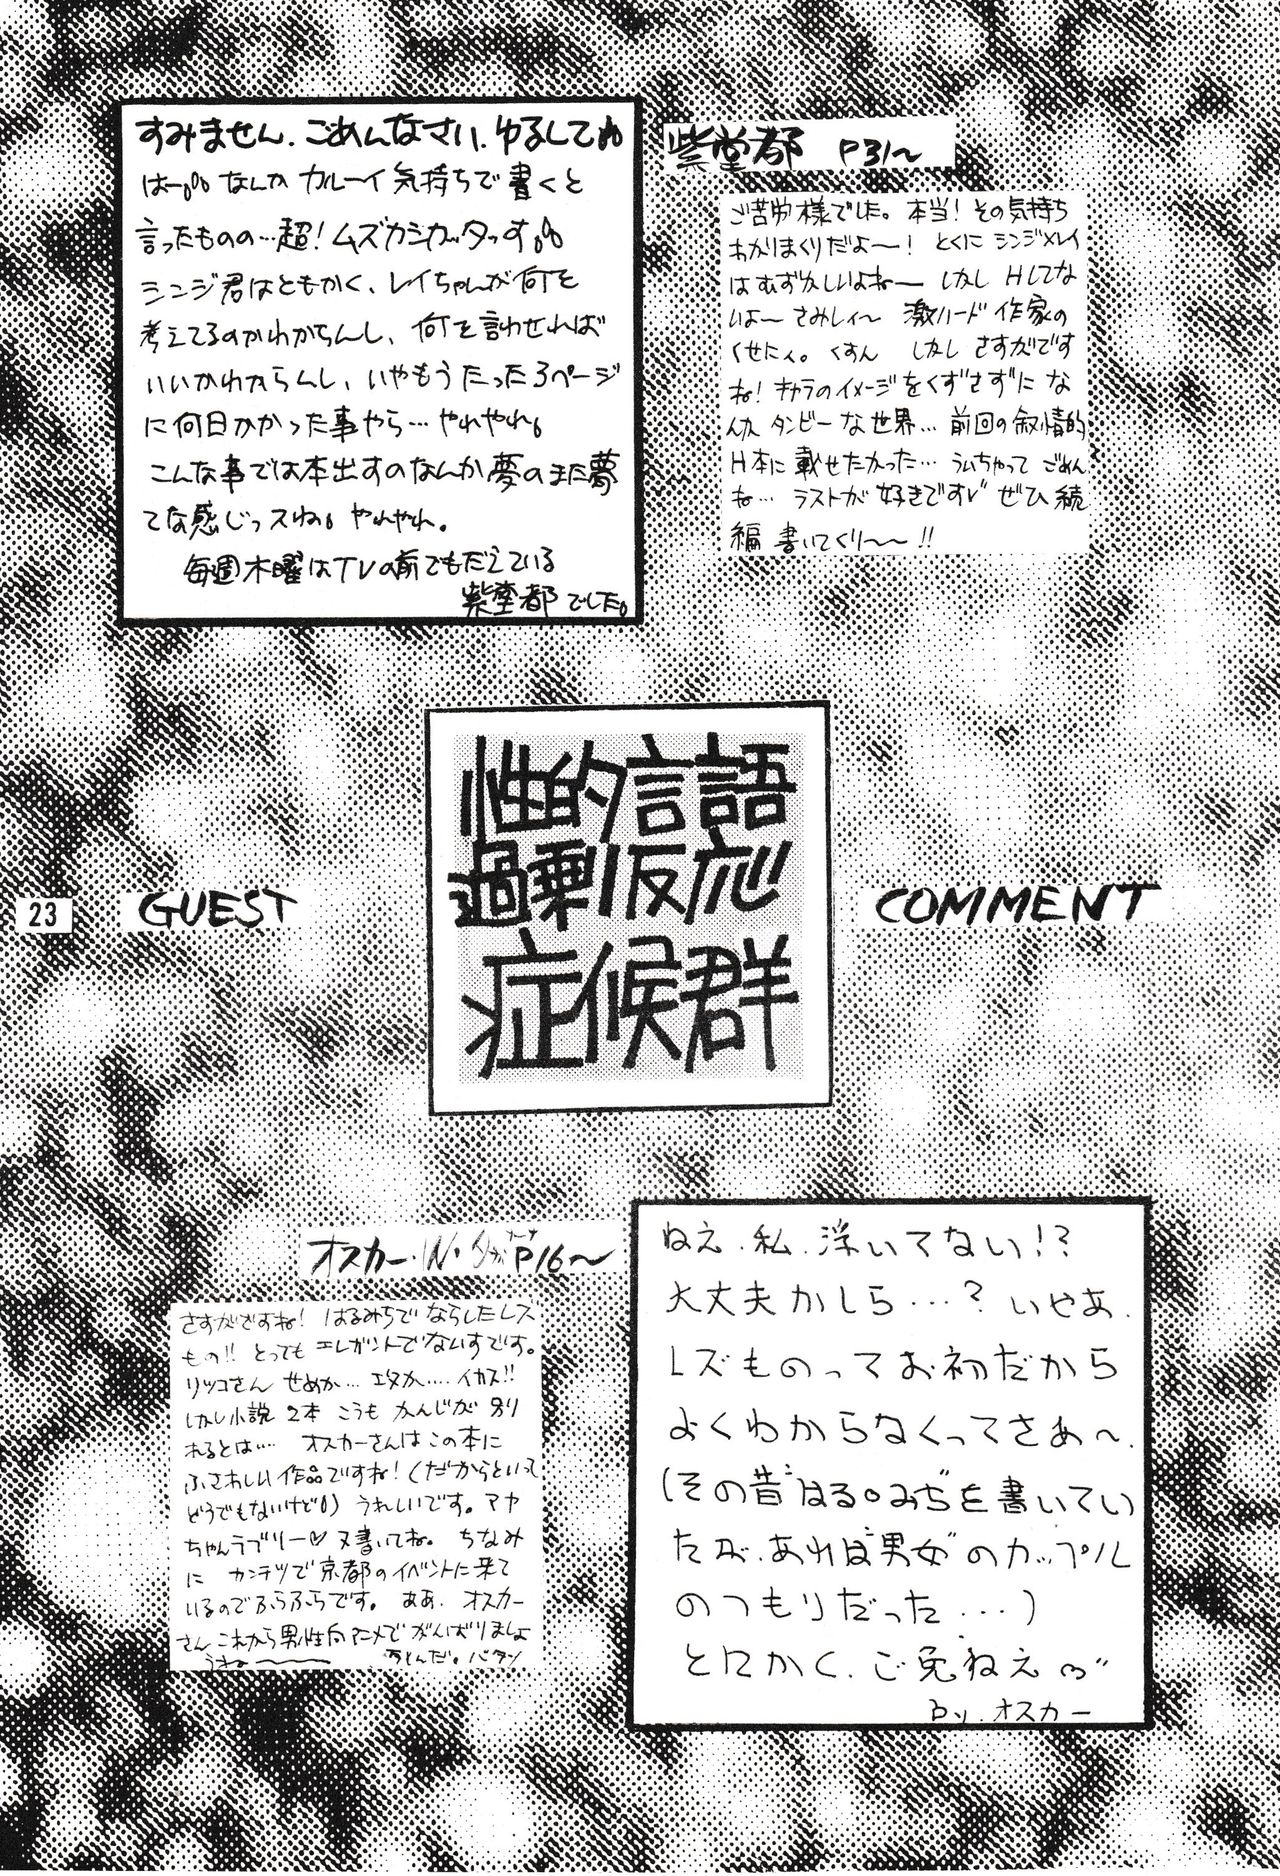 すみません、ごめんなさい、ゆるしてね
はー。なんかカルーイ気持ちで書くと
言ったものの…超！ムズカシカッタっす。
シンジ君はともかく、レイちゃんが何を
考えてるのかわからんし、何を言わせれば
いいかわからんし、いやもうたった3ページ
に何日かかった事やら…やれやれ。
こんな事では本出すのなんか夢のまた夢
てな感じっスね。やれやれ。
毎週木曜はTVの前でもだえている
紫堂都でした。
紫堂都 P31〜
ご苦労様でした。本当！その気持ち
わかりまくりだよ〜！とくにシンジ×レイ
はむずかしいよね〜 しかしHしてな
いよ〜 さみしィ〜 激ハード作家の
くせにィ。くすん しかし さすがです
ね！キャラのイメージをくずさずに な
んか タンビーな世界… 前回の叙情的
H本に載せたかった… ういちゃって ごめん
ね… ラストが好きです♡ ぜひ続
編書いてくり〜〜!!
性的言語
過剰反応
症候群
23
GUEST
COMMENT
オスカー・W・ P16〜
さすがですね！はるみちでならしたレズ
もの!! とっても エレガントでないすです。
リツコさん せめか… エタか…. イカス!!
しかし小説 2本 こうも かんじが 別
れるとは…. オスカーさんはこの本に
ふさわしい作品ですね！（だからといって
どうでもないけど）うれしいです。マヤ
ちゃんラブリー♡ 又書いてね。ちなみ
に カンテツで京都のイベントに来て
いるのでふらふらです。ああ、オスカー
さんこれから男性向アニメで がんばりましょ
うね〜 バタン
ねえ、私、浮いてない!?
大丈夫かしら…？いやあ、
レズものってお初だから
よくわからなくってさあ〜、
（その昔"はる○みち"を書いてい
たが、あれは"男女"のカップル
のつもりだった…）
とにかく、ご免ねえ
by.オスカー